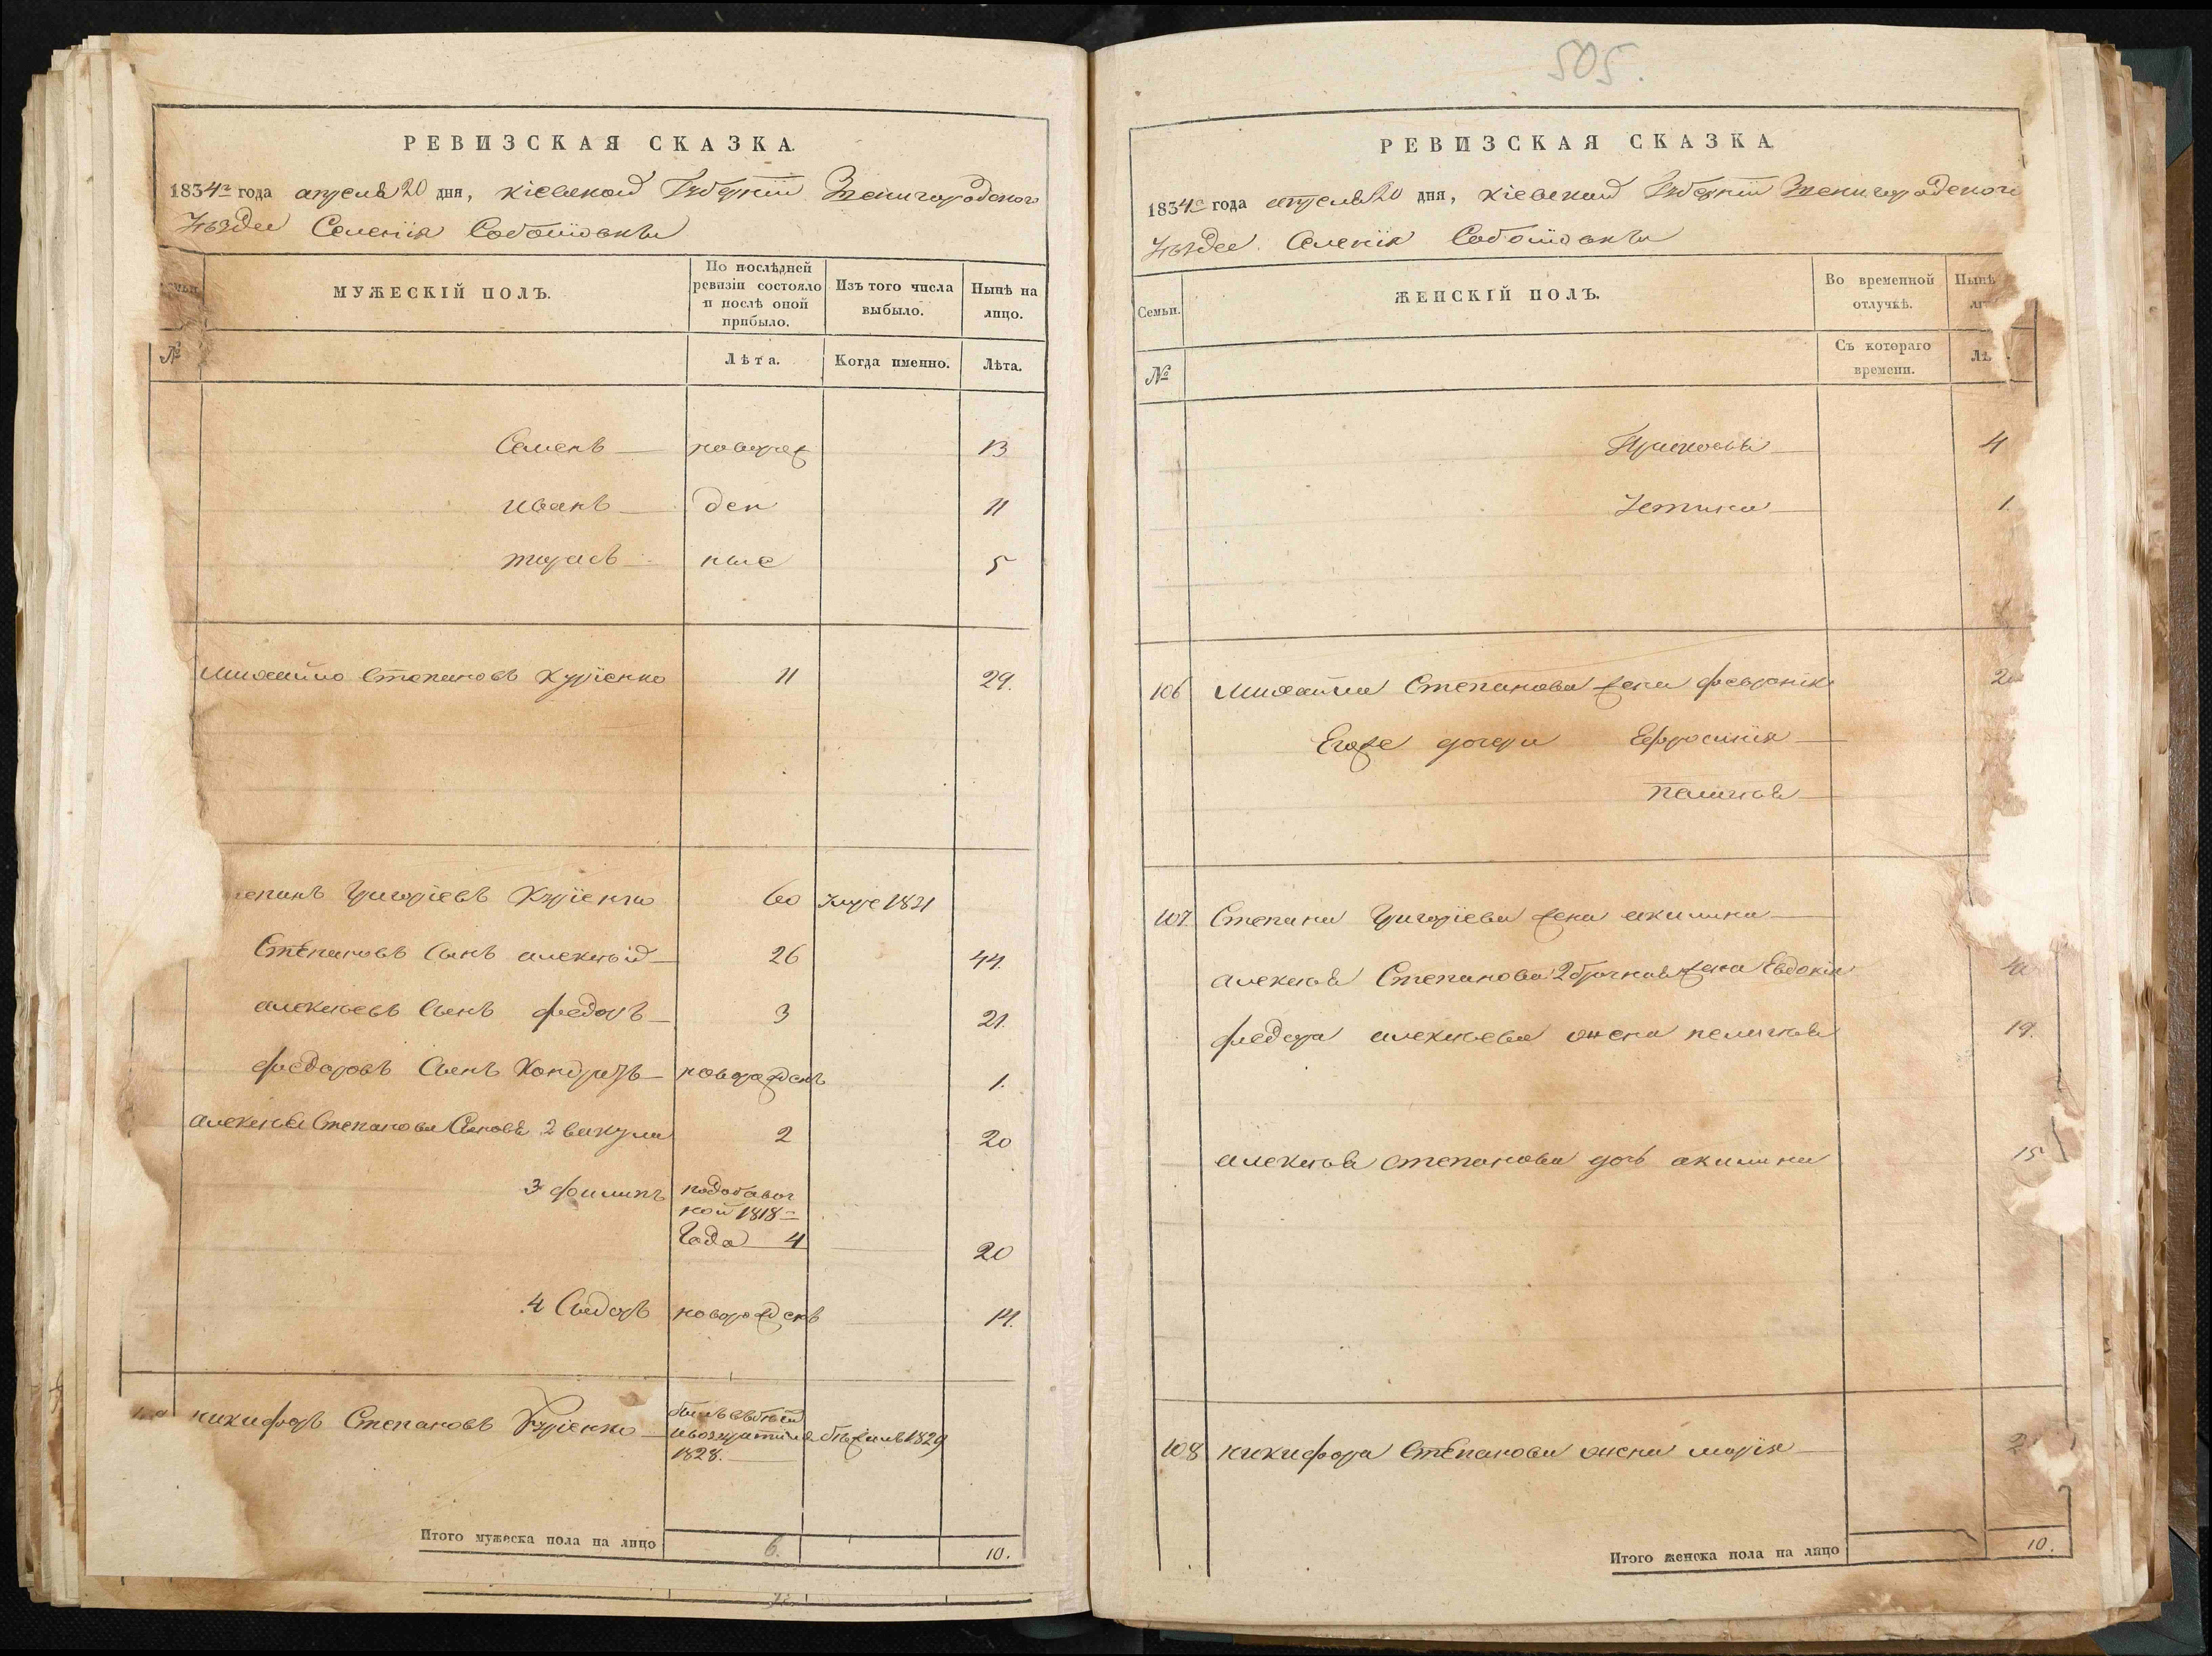 РЕВИЗСКАЯ СКАЗКА.
1834г. года апреля 20 дня, Кіевской Губерніи Звенигородского
Уѣзда Селенія Соботовки
Семьи.
МУЖЕСКІЙ ПОЛЪ.
По послѣдней ревизіи состояло и послѣ оной прибыло.
Изъ того числа выбыло.
Нынѣ на лицо.
№
Лѣта.
Когда именно.
Лѣта.
Семенъ новорож 13
Иванъ ден 11
Тарасъ ные 5
Михайло Степановъ Куріенко 11 29.
епанъ Григоріевъ Куріенко 60 1821
Степановъ Сынъ алексѣй 26 44.
алексѣевъ Сынъ федоръ 3 21.
федоровъ Сынъ Кондратъ новорожденъ 1.
алексѣя Степанова Сыновя 2 вакула 2 20
3 филипъ подобавоч
ной 1818
Года 4 20
4 Сидоръ новорожденъ 14.
никифоръ Степановъ Куріенко
1828. бежалъ 1829
Итого мужеска пола на лицо 6. 10.
505.
РЕВИЗСКАЯ СКАЗКА.
1834г. года апреля 20 дня, Кіевской Губерніи Звенигородского
Уѣзда Селенія Соботовки
Семьи.
ЖЕНСКІЙ ПОЛЪ.
Во временной отлучкѣ.
Нынѣ
№
Съ котораго времени.
Лѣ
4
Устина 1.
106 Михайла Степанова жена февронія 2
Егоже дочери Ефросинія
пелагея
107. Степана Григоріева жена акилина
алексѣя Степанова 2 брачная жена Евдокія
федора алексѣева жена пелагея 19.
алексѣя степанова дочь акилина 15
108 никифора Степанова жена марія 2
Итого женска пола на лицо 10.